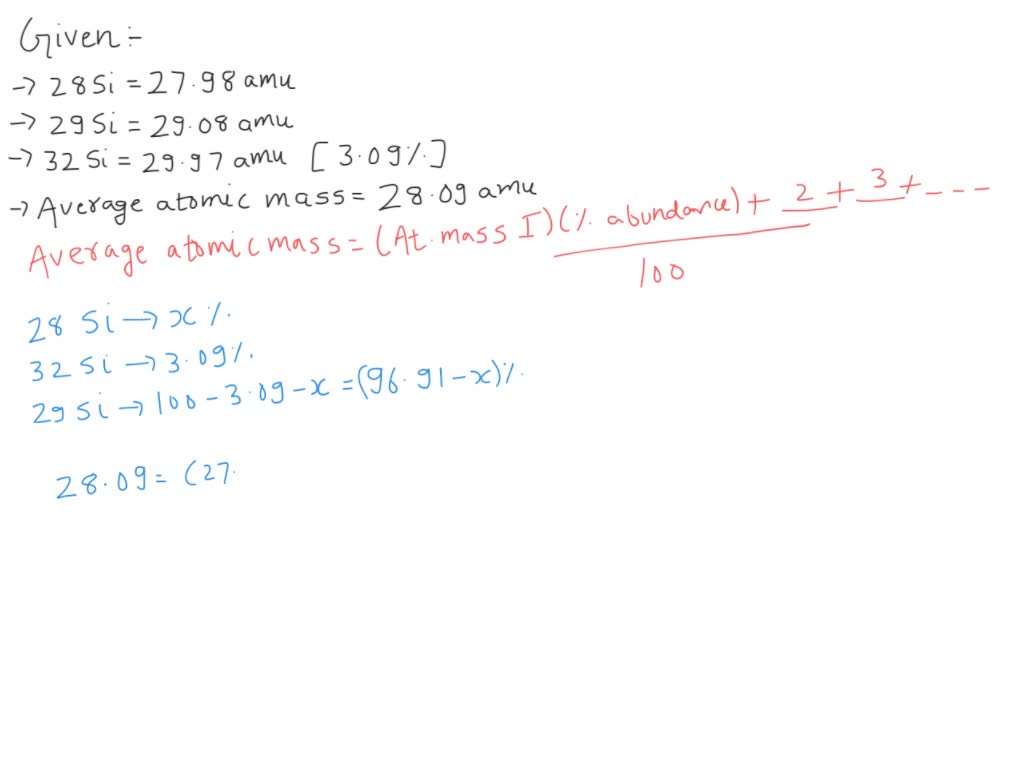 Given :-
→ 28Si = 27.98 amu
→ 29Si = 29.08 amu
→ 32Si = 29.97 amu [3.09%]
→ Average atomic mass = 28.09 amu
Average atomic mass = (At. mass I)(% abundance) + 2 + 3 + ---
100
28 Si → x %.
32 Si → 3.09%.
29 Si → 100 - 3.09 - x = (96.91 - x)%.
28.09 = (27.